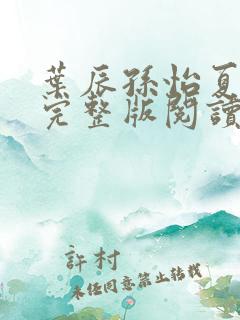 葉辰孫怡夏
完整版閱讀
許村
未經同意禁止轉載